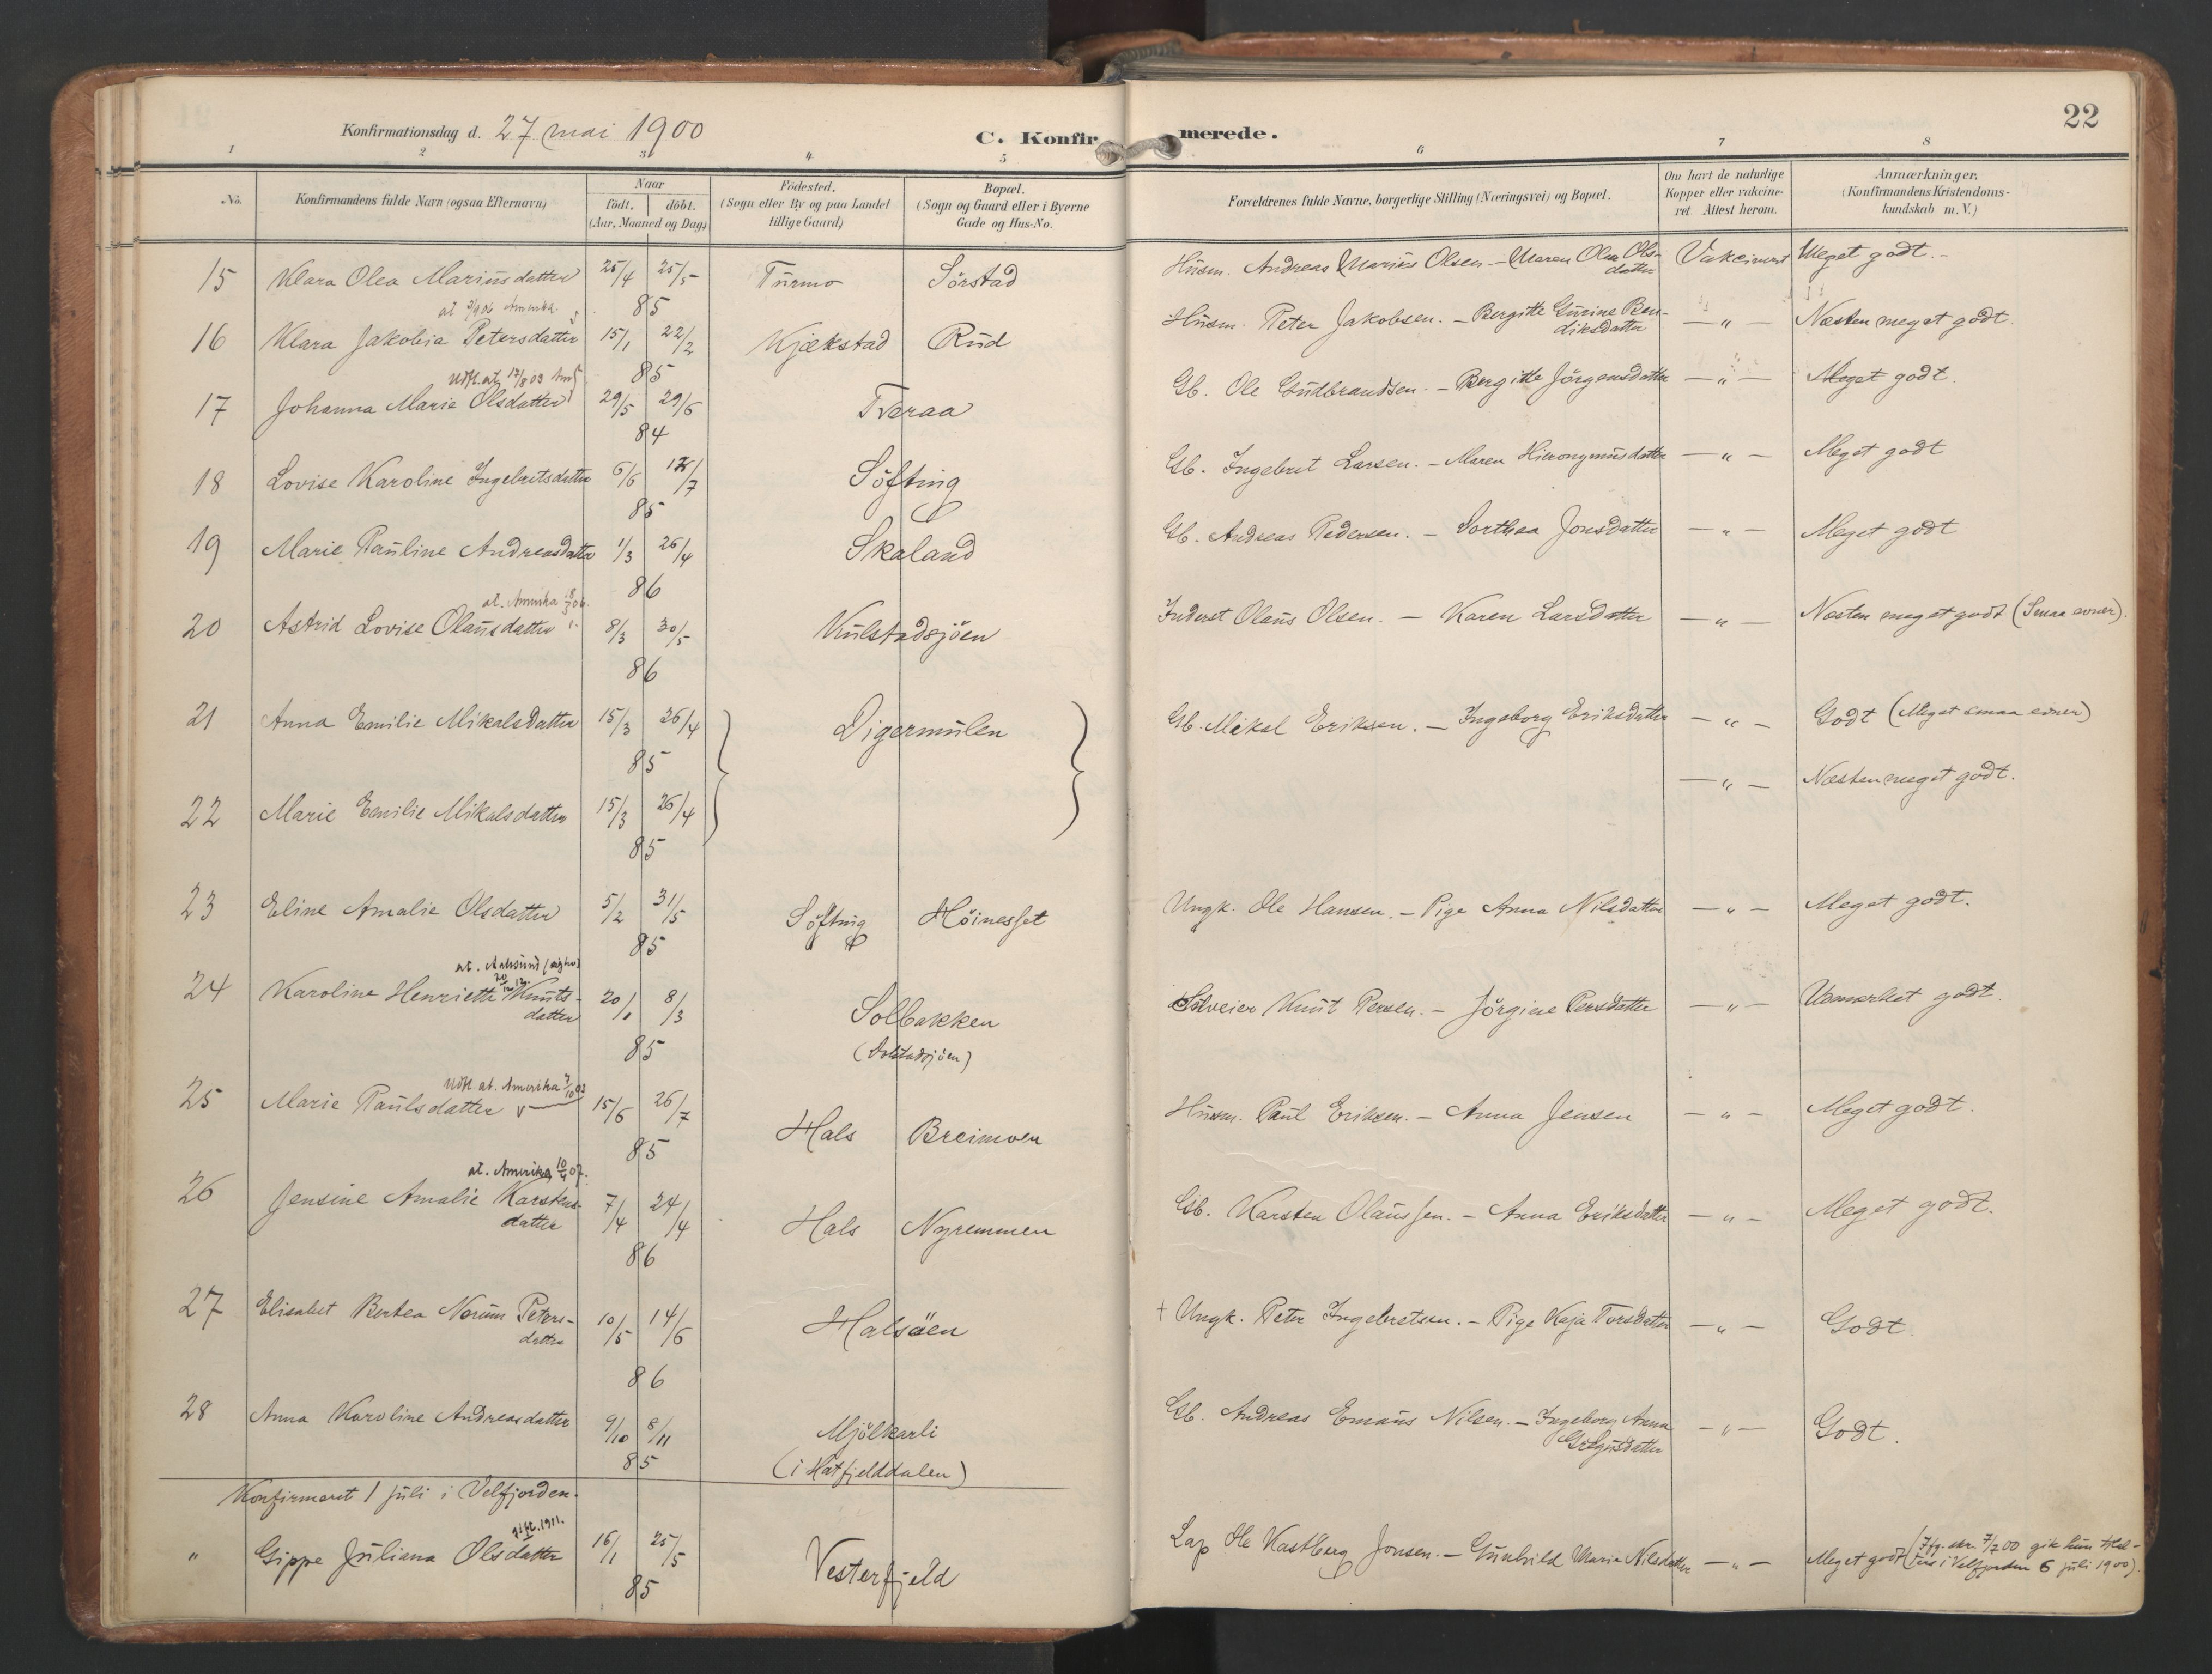 22
Konfirmationsdag d. 27 mai 1900
C. Konfirmerede.
1 2 3 4 5 6 7 8
No.
Konfirmandens fulde Navn (ogsaa Efternavn)
Naar
födt. döbt.
(Aar, Maaned og Dag)
Födested.
(Sogn eller By og paa Landet
tillige Gaard)
Bopæl.
(Sogn og Gaard eller i Byerne
Gade og Hus-No.
Forældrenes fulde Navne, borgerlige Stilling (Næringsvei) og Bopæl.
Om havt de naturlige
Kopper eller vakcine-
ret. Attest herom.
Anmærkninger.
(Konfirmandens Kristendoms-
kundskab m. V.)
15 Klara Olea Mariusdatter 25/4 25/5 85 Turmo Sörstad Husm. Andreas Marius Olsen - Maren Olea Ols-
datter Vakcineret Meget godt.-
at. Amerika
16 Klara Jakobia Petersdatter 15/1 22/2 85 Kjækstad Rud Husm. Peter Jakobsen. - Bergitte Gurine Ben-
diksdatter -"- Næsten meget godt.
Udfl.at. 17/8 03
17 Johanna Marie Olsdatter 29/5 29/6 84 Tveraa Gb. Ole Gudbrandsen. - Bergitte Jörgensdatter -"- Meget godt.
18 Lovise Karoline Ingebretsdatter 6/6 /7 85 Söfting Gb. Ingebret Larsen. - Maren Hieronymusdatter -"- Meget godt
19 Marie Pauline Andreasdatter 1/3 26/4 86 Skaland Gb. Andreas Pedersen. - Dorthea Jonsdatter -"- Meget godt
at. Amerika
20 Astrid Lovise Olausdatter 8/3 30/5 86 Kulstadsjöen Inderst Olaus Olsen. - Karen Larsdatter -"- Næsten meget godt (Smaa evner).
21 Anna Emilie Mikalsdatter 15/3 26/4 85 Digermulen Gb. Mikal Eriksen. - Ingeborg Eriksdatter -"- Godt (Meget smaa evner)
22 Marie Emilie Mikalsdatter 15/3 26/4 85 -"- Næsten meget godt.
23 Eline Amalie Olsdatter 5/2 31/5 85 Söfting Höinesset Ungk. Ole Hansen. - Pige Anna Nilsdatter -"- Meget godt.
24 Karoline Henriette Knuts-
datter 20/1 8/3 85 Solbakken
(Dolstadsjöen) Selveier Knut Persen. - Jörgine Persdatter -"- Udmerket godt.
Udfl. at. Amerika
25 Marie Paulsdatter 15/6 26/7 85 Hals Breimoen Husm. Paul Eriksen. - Anna Jensen -"- Meget godt.
at. Amerika 10/4 07.
26 Jensine Amalie Karstens-
datter 7/4 24/4 86 Hals Nyremmen Gb. Karsten Olaussen. - Anna Eriksdatter -"- Meget godt.
27 Elisabet Bertea Norum Peters-
datter 10/5 14/6 86 Halsöen + Ungk. Peter Ingebretsen. - Pige Kaja Torsdatter -"- Godt.
28 Anna Karoline Andreasdatter 9/10 8/11 85 Mjölkarli
(i Hatfjelddalen) Gb. Andreas Emaus Nilsen. - Ingeborg Anna
Gregusdatter -"- Godt.
Konfirmeret 1 juli i Velfjorden.
gift. 1911.
" Gippe Juliana Olsdatter 16/1 25/5 85 Vesterfjeld Lap Ole Kastberg Jonsen. - Gunhild Maria Nilsdatter -"- Meget godt (Ifg. skr. 7/7 00 gik hun til al-
ters i Velfjorden 6 juli 1900).